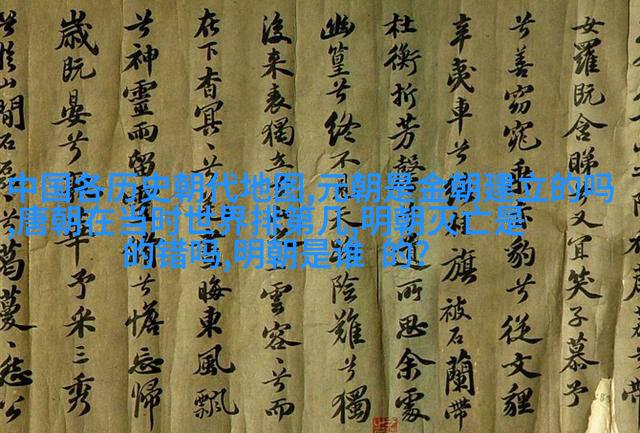 中国各历史朝代地图,元朝是金朝建立的吗
,唐朝在当时世界排第几,明朝灭亡是
的错吗,明朝是谁 的?
女羅既含睇又宜笑子慕予
兮善窈窕乘豹兮從文貍
辛夷車兮旗被石蘭帶
杜衡折芳馨所思余處
幽篁兮終不陰難兮獨
後来表獨立雲容容兮而
在下杳冥冥晦東風飄
兮神靈雨留兮憺忘歸
歲既晏兮予采三秀
兮於山間石葛蔓怨公